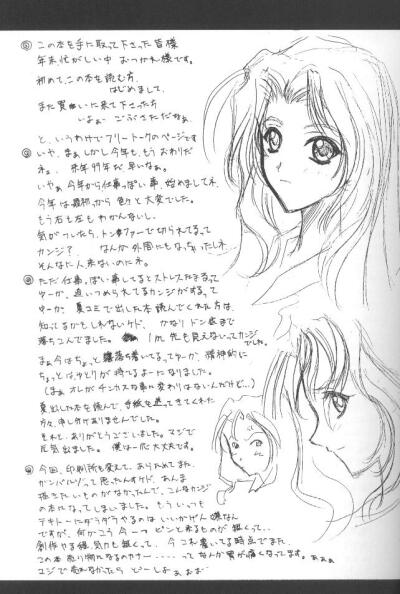 ◎ この本を手に取って下さった皆様
年末忙がしい中 おつかれ様です。
初めて、この本を読む方、
はじめまして、
また買いに来て下さった方
いよぉー ごぶさただねぇ
と、いうわけでフリートークのページです
◎ いや、まぁしかし今年も、もうおわりだ
ねぇ、来年99年だ早いなぁ。
いやぁ今年から仕事っぽい事、始めましてネ
今年は最初から色々と大変でした。
もう右も左もわかんないし、
気がついたら、トンズラーで切られてるって
カンジ? なんか外国にもなっちゃったしネ
そんなに人来ないのにネ。
◎ ただ仕事っぽい事してるとストレスたまるって
ゆーか、追いつめられてるカンジがするって
ゆーか、夏コミで出した本読んでくれた方は、
知ってるかもしれないケド、かなりドン底まで
落ちこんでました。 1m先も見えないってカンジ
でした。
まぁ今はちょっと落ち着いてるってゆーか、精神的に
ちょっとはゆとりが持てるよーになりました。
(まぁオレがチンカスな事に変わりはないんだけど…)
夏出した本を読んで、手紙を送ってきてくれた
方々、申し分けありませんでした。
それと、ありがとうございました。マジで
元気出ました。僕は一応大丈夫です。
◎ 今回、印刷所も変えて、あらためてまた、
ガンバルゾって思ったんすケド、あんま
描きたいものがなかったんで、こんなカンジ
の本になってしまいました。もういつも
テキトーにダラダラやるのはいいかげん嫌なん
ですが、何かこう今一つピンと来るものが無くって…
創作やる程、気力も無くって… 今これ書いてる時点でまだ、
この本売り物になるのカナー…… ってなんか胃が痛くなってます。あぁぁ
マジで売れなかったらどーしよぉぉぉ